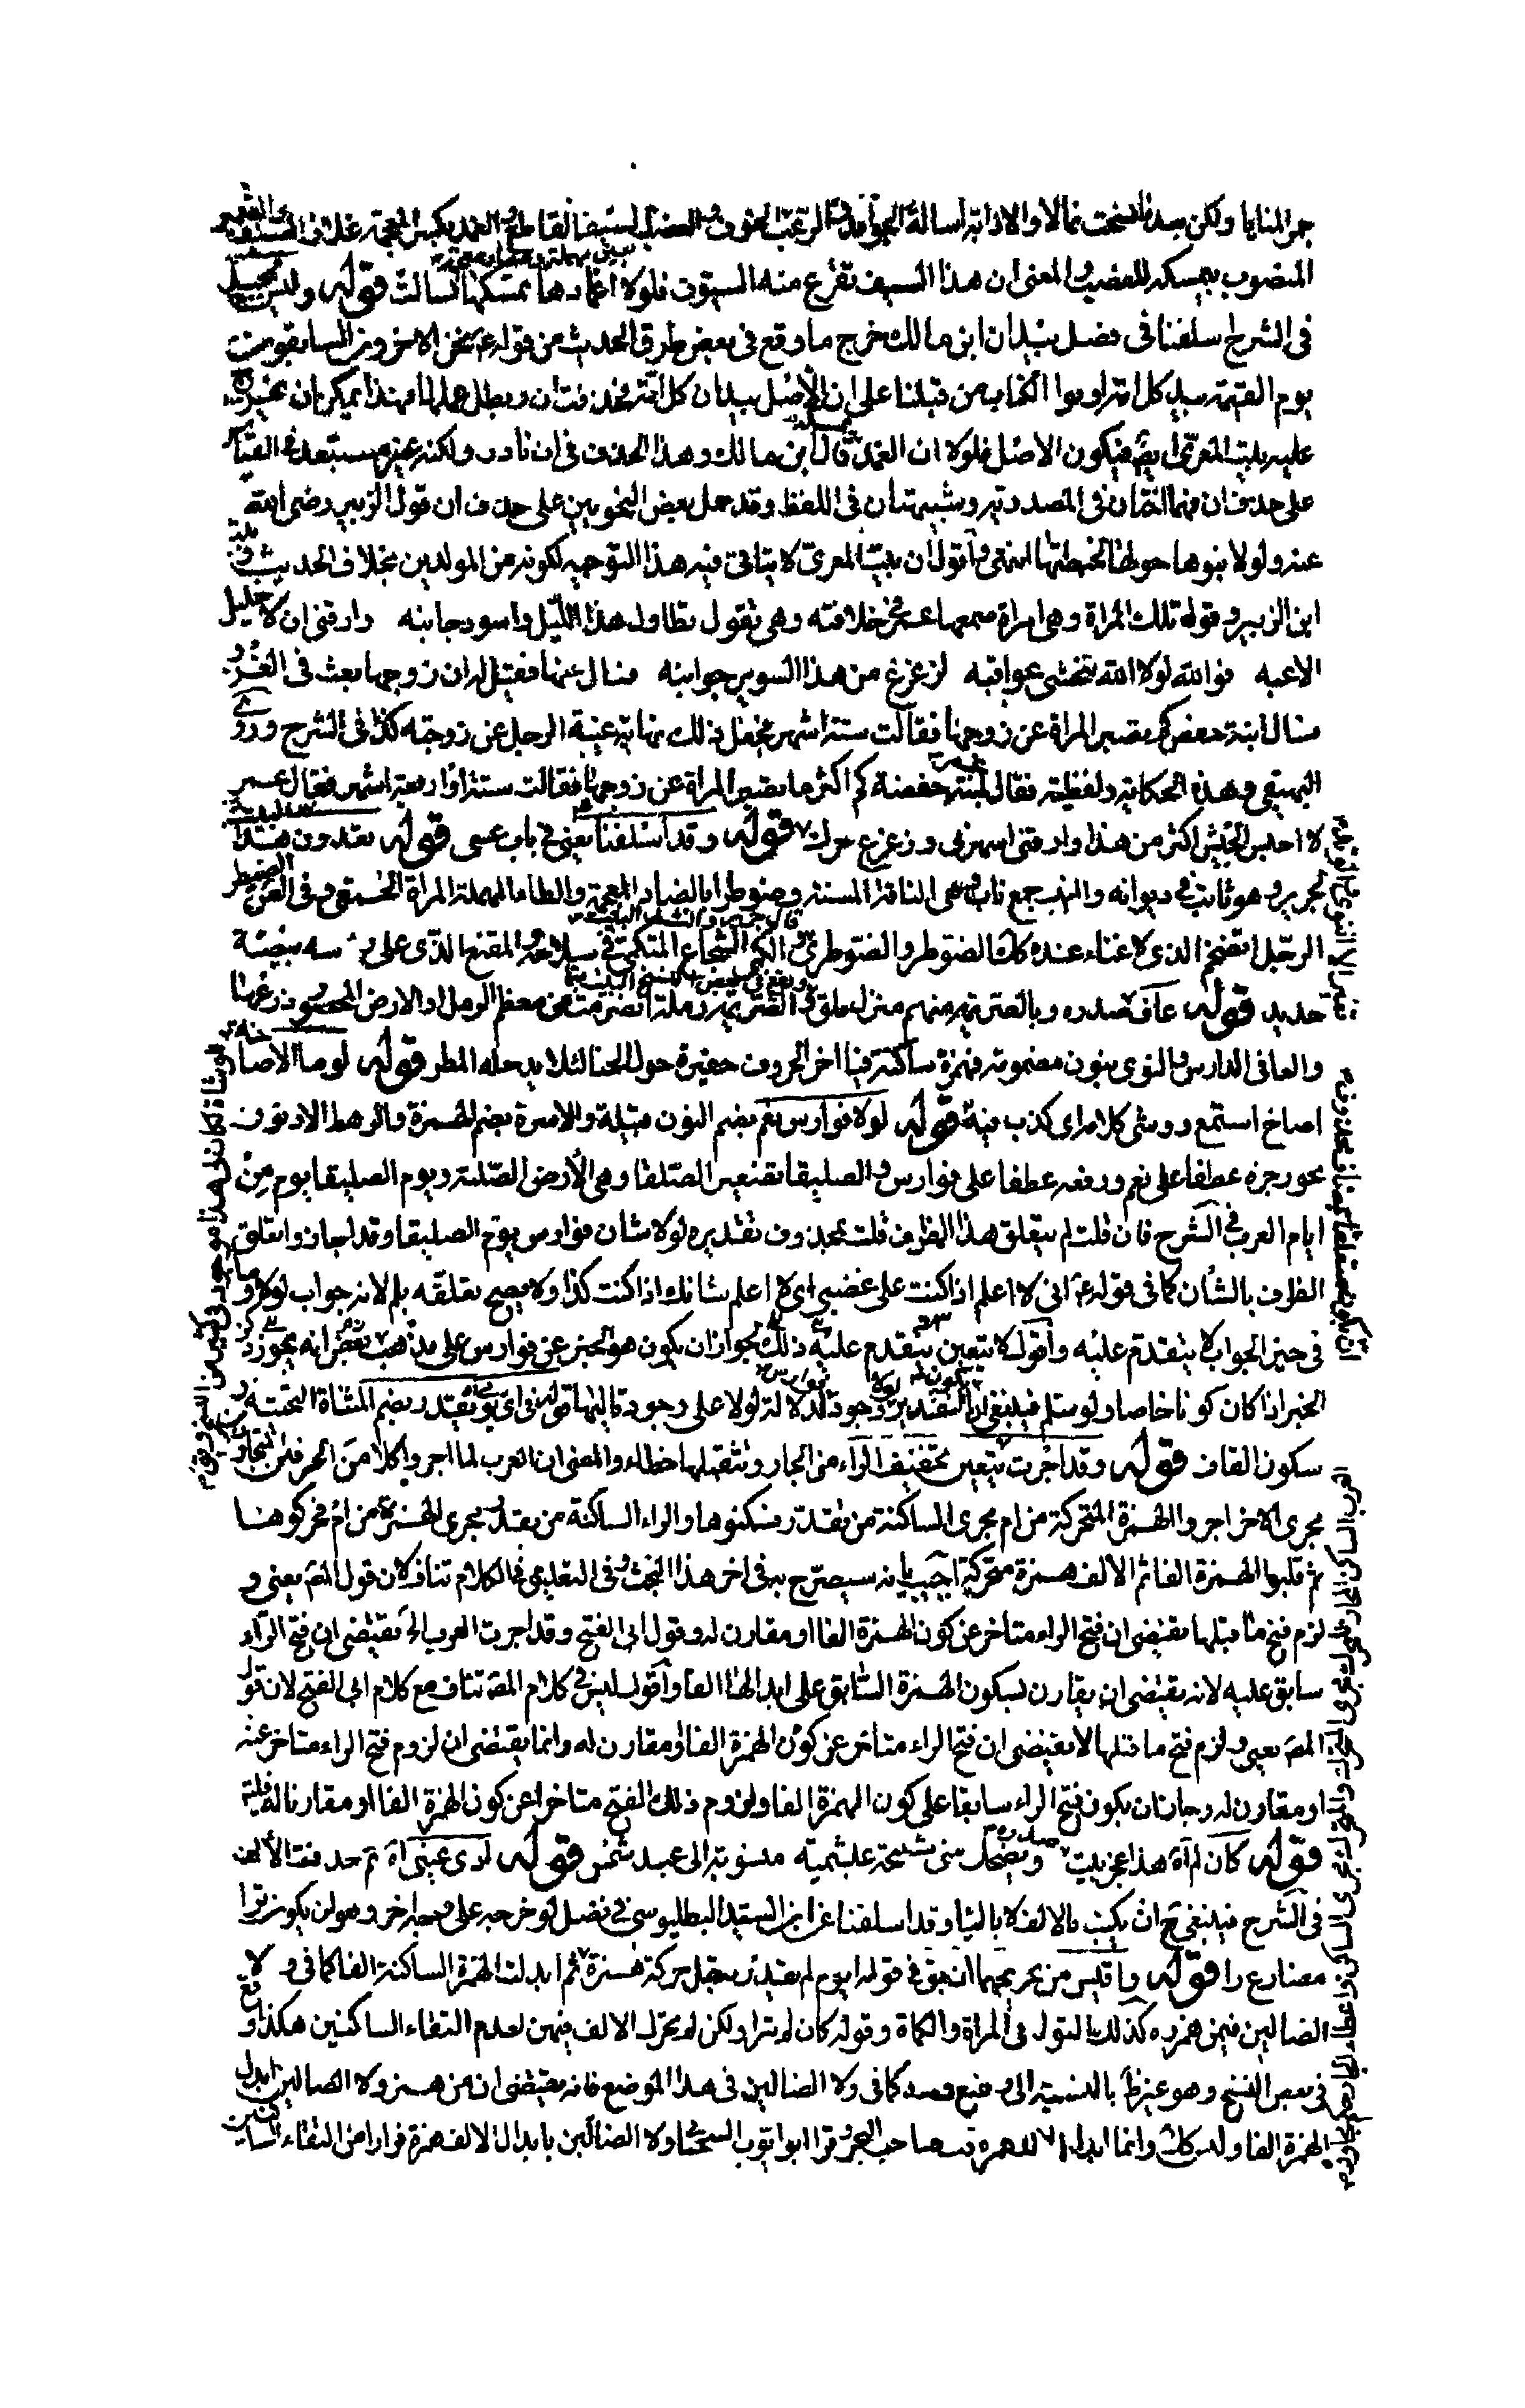 حمر المنايا ولكن بعد ما مسخت نمالا والاذابة اسالة الجوامد الرعب الخوف والعضب السيف القاطع والغمد بكسر المعجمة غلاف السيف
المنصوب بيمسكه للعضب والمعنى ان هذا السيف تفزع منه السيوف فلولا اغمادها تمسكها لسالت قوله وليس بجيد
في الشرح اسلفنا في فصل بيد ان ابن مالك خرج ما وقع في بعض طرق الحديث من قوله عم نحن الاخرون السابقون
يوم القيمة بيد كل امة اوتوا الكتاب من قبلنا على ان الاصل بيد ان كل امة فحذفت ان وبطل عملها فهذا يمكن ان
عليه بيت المعري ايضا فيكون الاصل فلولا ان الغمد قال ابن مالك وهذا الحذف في ان نادر ولكنه غير مستبعد في القياس
على حذف ان فانهما اختان في المصدرية وشبيهتان في اللفظ وقد حمل بعض النحويين على حذف ان قول الزبير رضي الله
عنه ولولا بنوها حولها لخبطتها انتهى واقول ان بيت المعري لا يتاتى فيه هذا التوجيه لكونه من المولدين بخلاف الحديث
ابن الزبير وقوله تلك المراة وهي امراة سمعها عمر في خلافته وهي تقول تطاول هذا الليل واسود جانبه وارقني ان لا خليل
الاعبه فوالله لولا الله تخشى عواقبه لزعزع من هذا السرير جوانبه فسال عنها فقيل له ان زوجها بعث في الغزو
فسال ابنته حفص كم تصبر المراة عن زوجها فقالت ستة اشهر فجعل ذلك نهاية غيبة الرجل عن زوجته كذا في الشرح وروى
البيهقي هذه الحكاية ولفظه فقال لبنته حفصة كم اكثر ما تصبر المراة عن زوجها فقالت ستة او اربعة اشهر فقال عمر
لا احبس الجيش اكثر من هذا وارقني اسهرني وزعزع حرك قوله وقد اسلفنا يعني في باب عسى قوله تعدون هذا
لجرير وهو ثابت في ديوانه والنيب جمع ناب وهي الناقة المسنة وضوطرا بالضاد المعجمة والطا المهملة المراة الحمقى وفي
الرجل الضخم الذي لا غناء عنده كالضوطر والضوطرى والكمي الشجاع المتكمي في سلاحه والمقنع الذي على راسه بيضة
حديد قوله عاف صدره وبالصريمة منهم منزل خلق والصريمة رملة انصرمت من معظم الرمل او الارض المحصود زرعها
والعافي الدارس والنوى بنون مضمومة فهمزة ساكنة فيا اخر الحروف حفيرة حول الخبا لئلا يدخله المطر قوله لو ما الاصاخة
اصاخ استمع ووشى كلامه اي كذب فيه قوله لولا فوارس نعم بضم النون قبيلة والاسرة بضم الهمزة والرهط الادنون
نحو رجزه عطفا على نعم ورفعه عطفا على فوارس والصليقا تصغير الصلفا وهي الارض الصلبة ويوم الصليقا يوم من
ايام العرب في الشرح فان قلت لم يتعلق هذا الظرف قلت بمحذوف تقديره لولا شان فوارس يوم الصليقا وقد اجازوا تعلق
الظرف بالشان كما في قوله عم اني لا اعلم اذا كنت على غضبى اي لا اعلم شانك اذا كنت كذا ولا يصح تعلقه بلم لانه جواب لولا وما
في حيز الجواب لا يتقدم عليه واقول لا يتعين تقدم عليه ذلك لجواز ان يكون هو الخبر عن فوارس على مذهب بعض انه يجوز ذكر
الخبر اذا كان كونا خاصا ولو سلم فينبغي ان التقدير وجود لدلالة لولا على وجود تاليها قوله في اي يوم يقدر بضم المثناة التحتية
سكون القاف قوله وقد اجرت يتعين تخفيف الراء من الجار وتثقيلها خطاء والمعنى ان العرب لما اجروا كلا من الحرفين
مجرى الاخر اجروا الهمزة المتحركة من ام مجرى الساكنة من يقدر فسكنوها والراء الساكنة من يقدر مجرى الهمزة من ام فحركوها
ثم قلبوا الهمزة الفا ثم الالف همزة متحركة اجيب بانه سيصرح به في اخر هذا البحث وفي التعليق في الكلام تناف لان قول المص يعني و
لزم فتح ما قبلها يقتضي ان فتح الراء متاخر عن كون الهمزة الفا او مقارن له وقول ابي الفتح وقد اجرت العرب الخ يقتضي ان فتح الراء
سابق عليه لانه يقتضي ان يقارن لسكون الهمزة السابق على ابدالها الفا واقول ليس في كلام المص تناف مع كلام ابي الفتح لان قول
المص يعني ولزم فتح ما قبلها لا يقتضي ان فتح الراء متاخر عن كون الهمزة الفا او مقارن له وانما يقتضي ان لزوم فتح الراء متاخر عنه
او مقارن له وجاز ان يكون فتح الراء سابقا على كون الهمزة الفا ولزوم ذلك الفتح متاخرا عن كون الهمزة الفا او مقارنا له
قوله كان لم اه هذا عجز بيت صدره وتضحك مني شيخة عبشمية منسوبة الى عبد شمس قوله لدى عيني اه ثم حذفت الالف
في الشرح فينبغي ح ان يكتب بالالف لا باليا وقد اسلفنا عن ابن السيد البطليوسي في فصل لو خرجه على وجه اخر وهو ان يكون ترا
مضارع را قوله واقيس من تخريجهما ان يق في قوله ايوم لم يقدر نقل حركة همزة ثم ابدلت الهمزة الساكنة الفا كما في ولا
الضالين فيمن همزه كذلك القول في المراة والكماة وقوله كان لم ترا ولكن لم يحرك الالف فيهن لعدم التقاء الساكنين هكذا وقع
في بعض النسخ وهو غير ظ بالنسبة الى وضع همزه كما في ولا الضالين في هذا الموضع فانه يقتضي ان من همز ولا الضالين ابدل
الهمزة الفا وليس كك وانما ابدل الالف همزة قال صاحب البحر وقرا ابو ايوب السختيا ولا الضالين بابدال الالف همزة فرارا من التقاء الساكنين